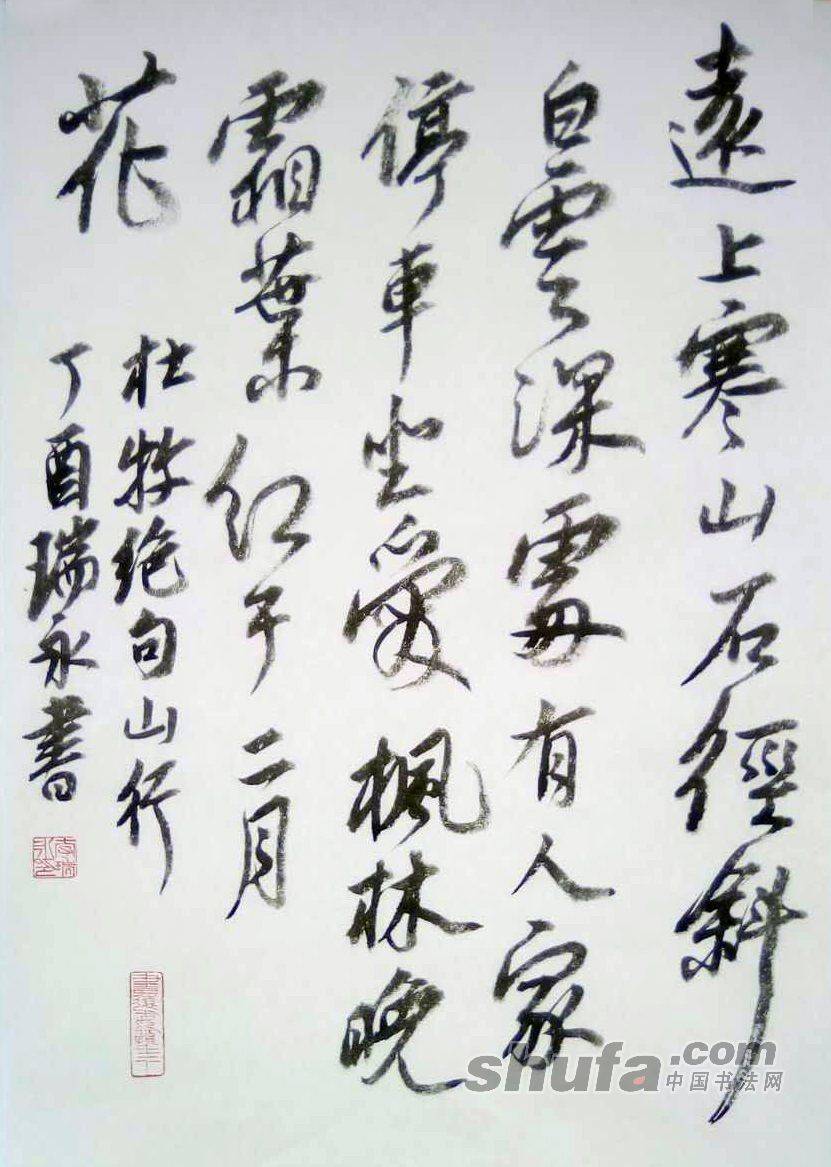 遠上寒山石徑斜
白雲深處有人家
停車坐愛楓林晚
霜葉紅于二月
花
杜牧绝句山行
丁酉瑞永書
shufa.com
中国书法网